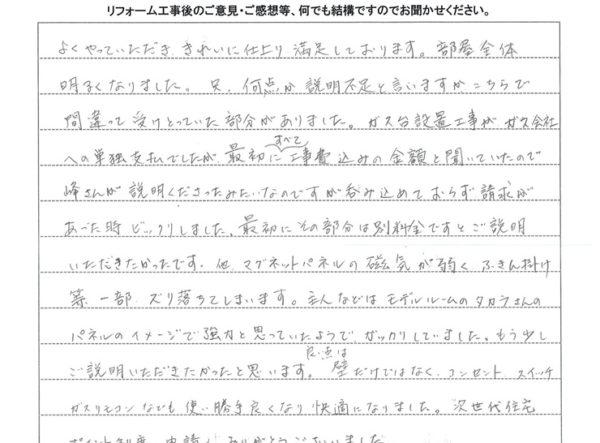 リフォーム工事後のご意見・ご感想等、何でも結構ですのでお聞かせください。
よくやっていただき、きれいに仕上り満足しております。部屋全体
明るくなりました。只、何点か説明不足と言いますかこちらで
間違って受けとっていた部分がありました。ガス台設置工事がガス会社
への単独支払でしたが、最初にすべて工事費込みの金額と聞いていたので
峰さんが説明くださったみたいなのですが呑み込めておらず請求が
あった時ビックリしました。最初にその部分は別料金ですとご説明
いただきたかったです。他、マグネットパネルの磁気が弱く、ふきん掛け
等、一部、ズリ落ちてしまいます。主人などはモデルルームのタカラさんの
パネルのイメージで強力と思っていたようで、ガッカリしていました。もう少し
ご説明いただきたかったと思います。良い点は壁だけではなく、コンセント、スイッチ
ガスリモコンなども使い勝手良くなり快適になりました。次世代住宅
ポイント制度、申請 ありがとうございました。